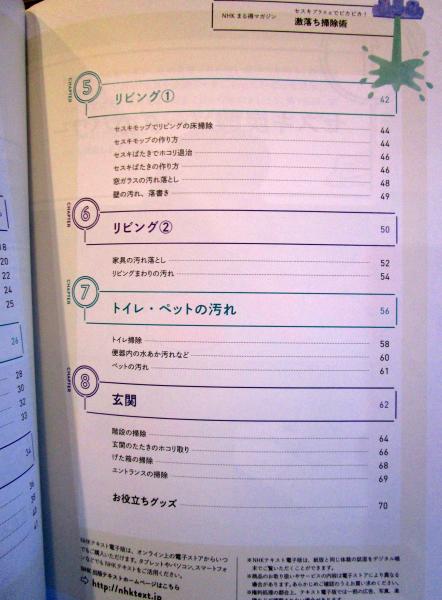 NHK まる得マガジン
セスキプラスαでピカピカ！
激落ち掃除術
CHAPTER 5 リビング① 42
セスキモップでリビングの床掃除 44
セスキモップの作り方 44
セスキはたきでホコリ退治 46
セスキはたきの作り方 46
窓ガラスの汚れ落とし 48
壁の汚れ、落書き 49
CHAPTER 6 リビング② 50
家具の汚れ落とし 52
リビングまわりの汚れ 54
CHAPTER 7 トイレ・ペットの汚れ 56
トイレ掃除 58
便器内の水あか汚れなど 60
ペットの汚れ 61
CHAPTER 8 玄関 62
階段の掃除 64
玄関のたたきのホコリ取り 66
げた箱の掃除 68
エントランスの掃除 69
お役立ちグッズ 70
NHKテキスト電子版は、オンライン上の電子ストアからいつ
でもご購入いただけます。タブレットやパソコン、スマートフォ
ンなどでもNHKテキストをご活用ください。
NHK出版テキストホームページはこちら
http://nhktext.jp
※NHKテキスト電子版は、紙版と同じ体裁の誌面をデジタル端
末でご覧いただくことができます。
※商品のお取り扱いやサービスの内容は電子ストアにより異なる
場合があります。あらかじめご確認のうえお買い求めください。
※権利処理の都合上、テキスト電子版では一部の広告、写真、楽
18
20
22
24
25
26
28
30
32
33
34
36
38
40